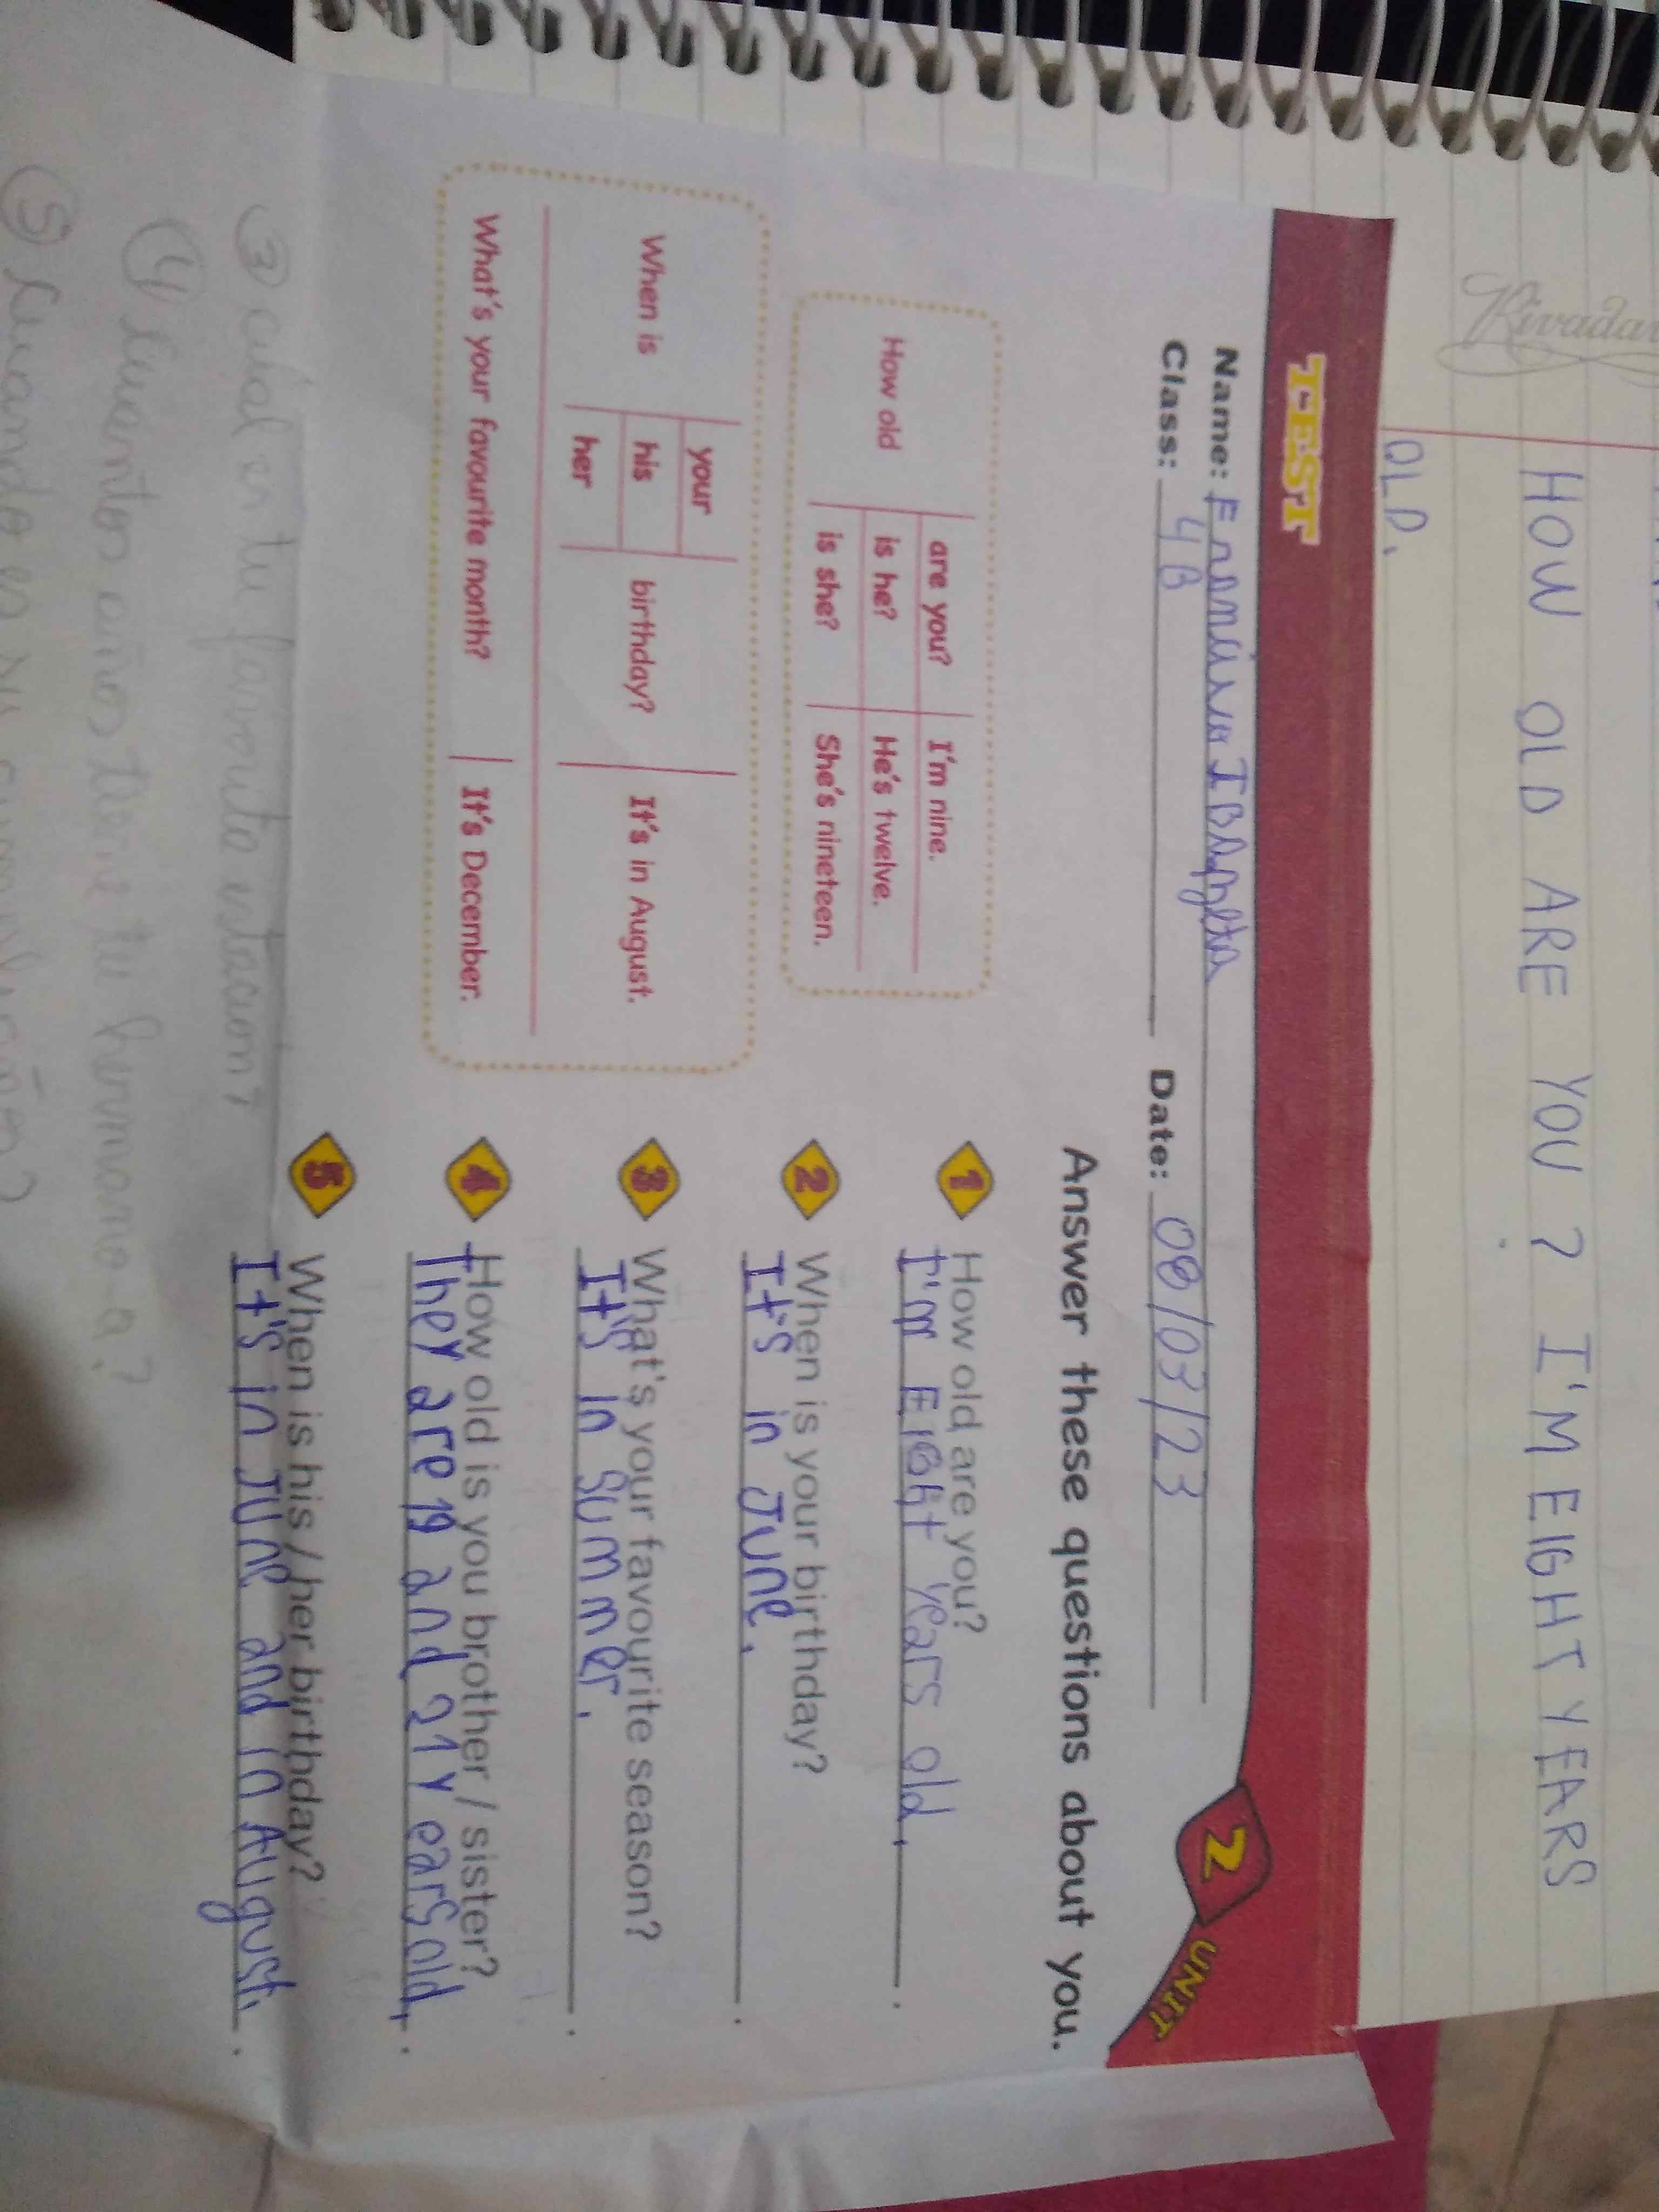 Rivadav
HOW OLD ARE YOU? I'M EIGHT YEARS
OLD.
TEST
2 UNIT
Name:
Class: 4B Date: 08/03/23
Answer these questions about you.
How old are you? I'm nine.
is he? He's twelve.
is she? She's nineteen.
When is your birthday? It's in August.
his
her
What's your favourite month? It's December.
1 How old are you?
I'm EIGHt years old.
2 When is your birthday?
It's in June.
3 What's your favourite season?
It's in summer.
4 How old is you brother / sister?
They are 19 and 21 years old.
5 When is his / her birthday?
It's in June and in August.
3 cuál es tu favourite estacion?
4 Cuantos años tiene tu hermano-a?
5 Cuando es su cumpleaños?